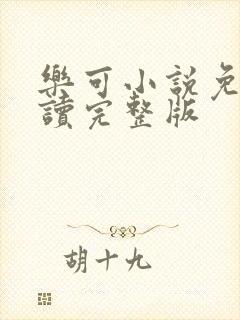 樂可小說免
讀完整版
胡十九